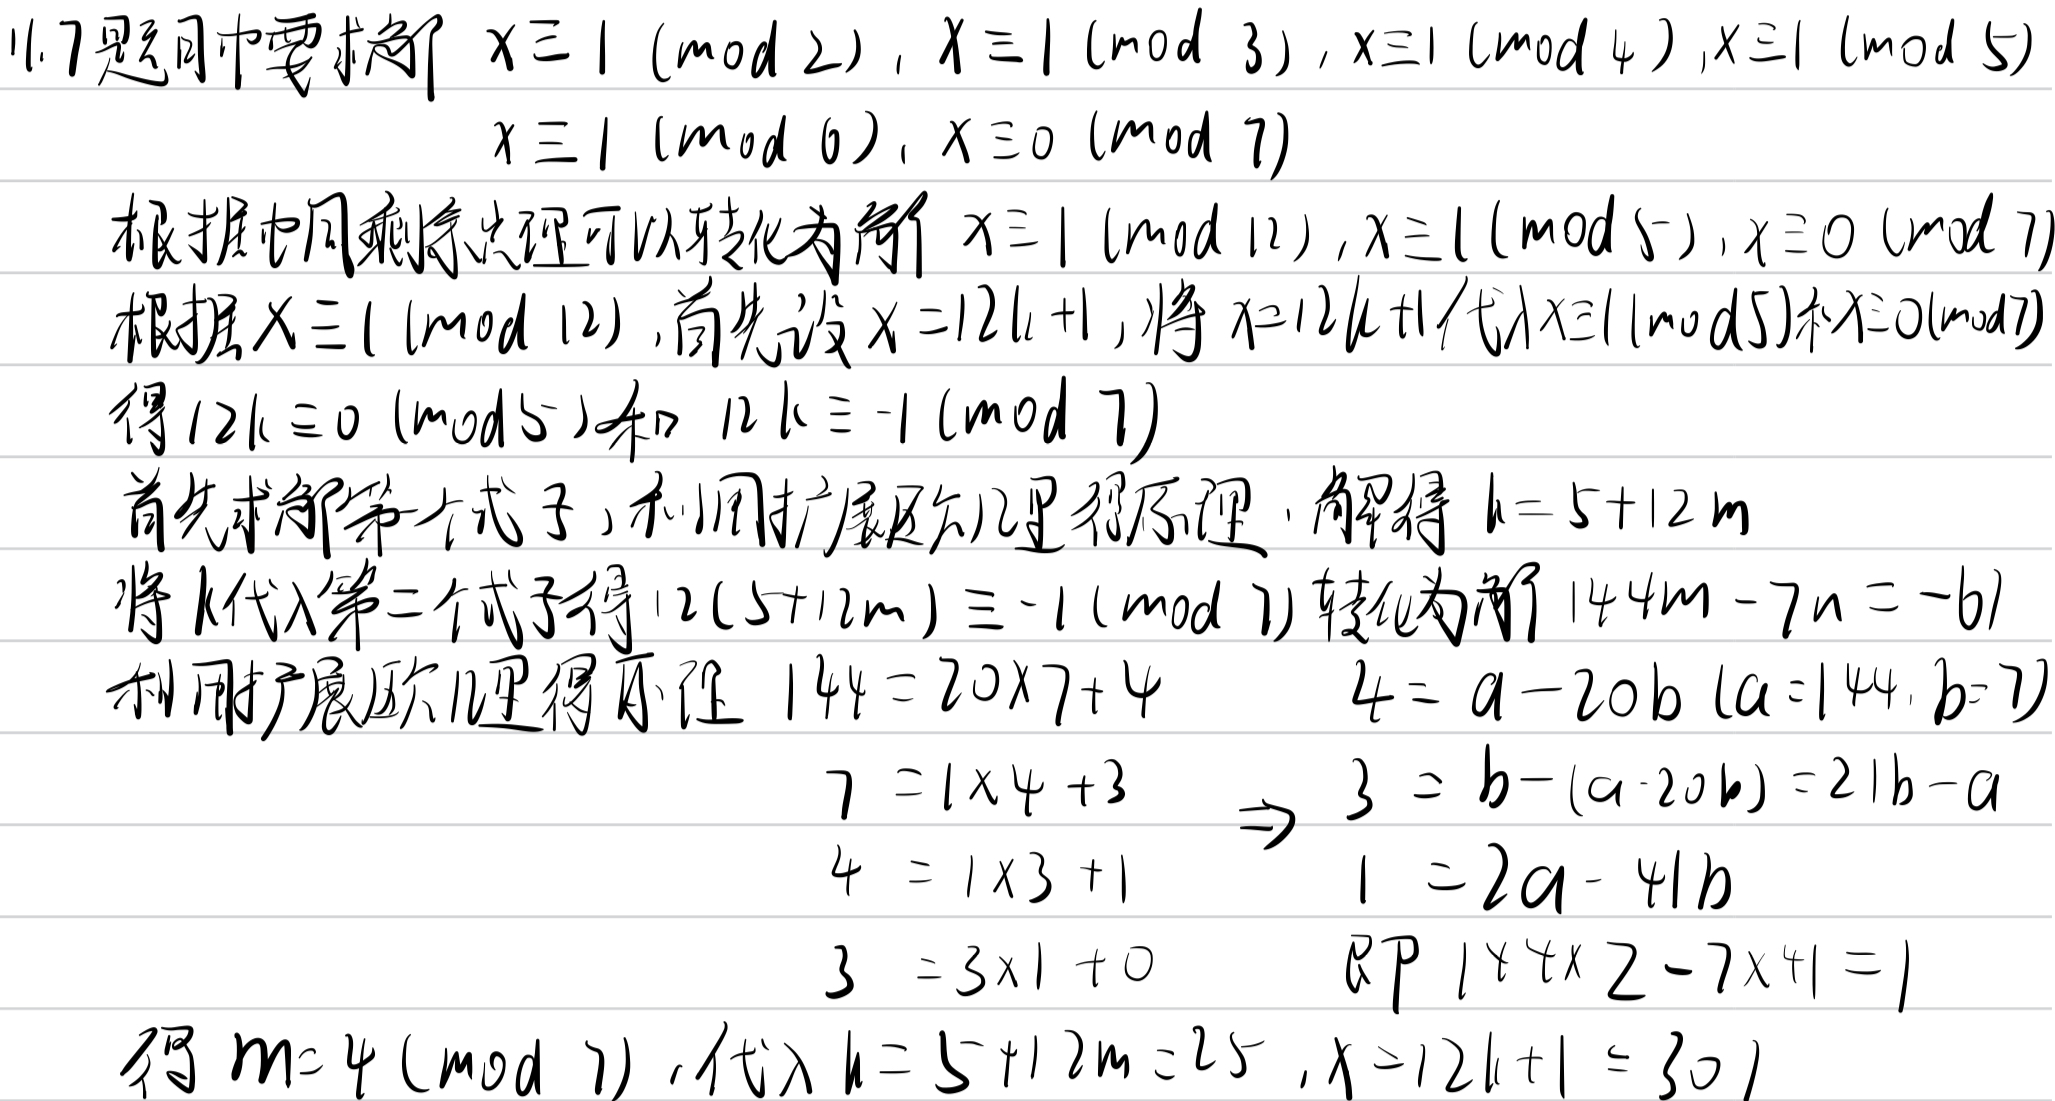 11.7题目中要求解 x≡1 (mod 2), x≡1 (mod 3), x≡1 (mod 4), x≡1 (mod 5)
x≡1 (mod 6), x≡0 (mod 7)
根据中国剩余定理可以转化为解 x≡1 (mod 12), x≡1 (mod 5), x≡0 (mod 7)
根据 x≡1 (mod 12), 首先设 x=12k+1, 将 x=12k+1代入x≡1(mod5)和x≡0(mod7)
得12k≡0 (mod5)和 12k≡-1 (mod 7)
首先求解第一个式子,利用扩展欧几里得原理,解得 k=5+12m
将k代入第二个式子得12(5+12m)≡-1(mod 7)转化为解144m-7n=-61
利用扩展欧几里得原理 144=20×7+4 4=a-20b (a=144, b=7)
7=1×4+3 ⇒ 3=b-(a-20b)=21b-a
4=1×3+1 1=2a-41b
3=3×1+0 即 144×2-7×41=1
得 m=4 (mod 7),代入 k=5+12m=25, x=12k+1=301